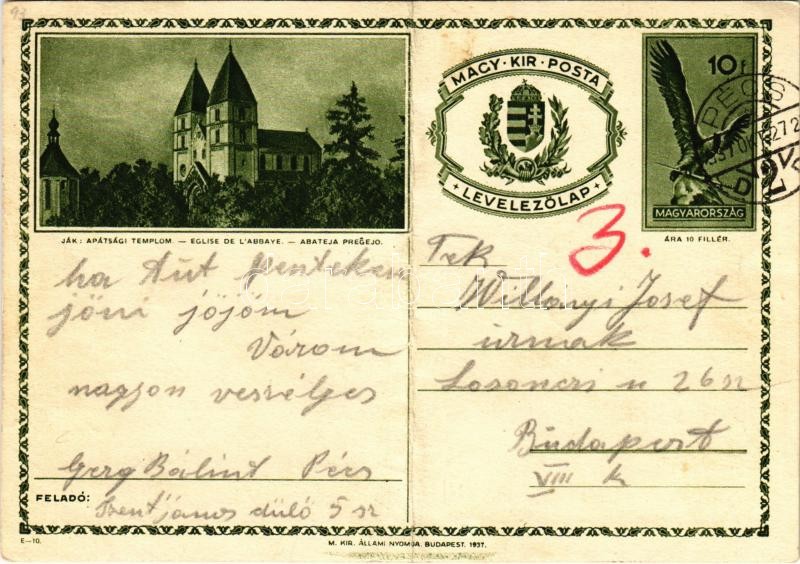 93
MAGY · KIR · POSTA
LEVELEZŐLAP
10 f
MAGYARORSZÁG
ÁRA 10 FILLÉR.
PÉCS
JÁK: APÁTSÁGI TEMPLOM. — EGLISE DE L'ABBAYE. — ABATEJA PREĜEJO.
3.
ha Aut
jöni jöjöm
Várom
nagyon veszélyes
Gerg Bálint Pécs
FELADÓ:
Szentjános dülő 5 sz
Tek
Willonyi Josef
urnak
Losonczi u 26 sz
Budapest
VIII k
E—10.
M. KIR. ÁLLAMI NYOMDA. BUDAPEST. 1937.